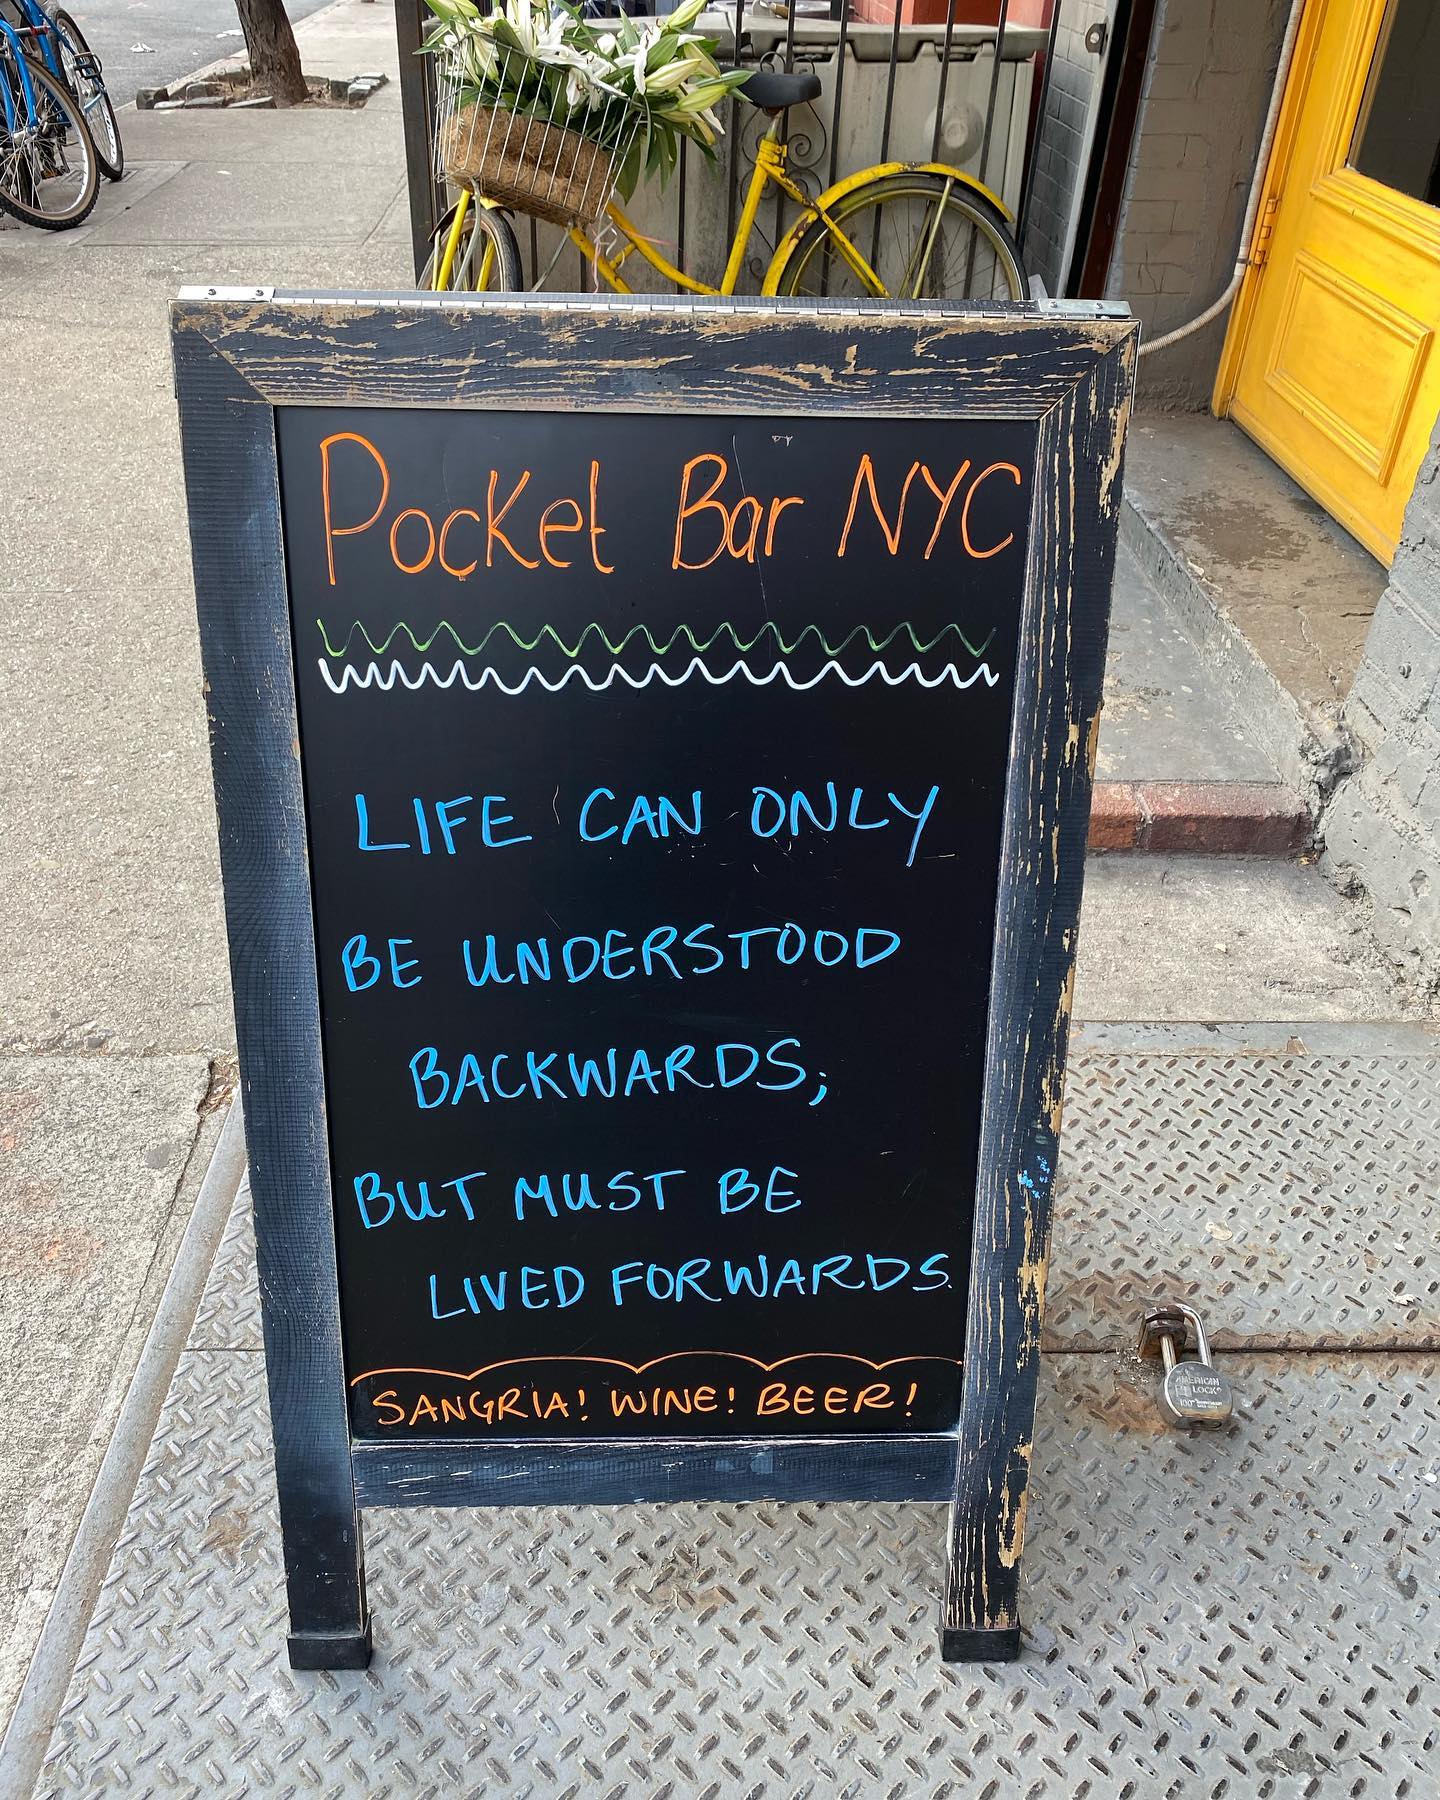 Pocket Bar NYC
LIFE CAN ONLY
BE UNDERSTOOD
BACKWARDS;
BUT MUST BE
LIVED FORWARDS.
SANGRIA! WINE! BEER!
AMERICAN
LOCK